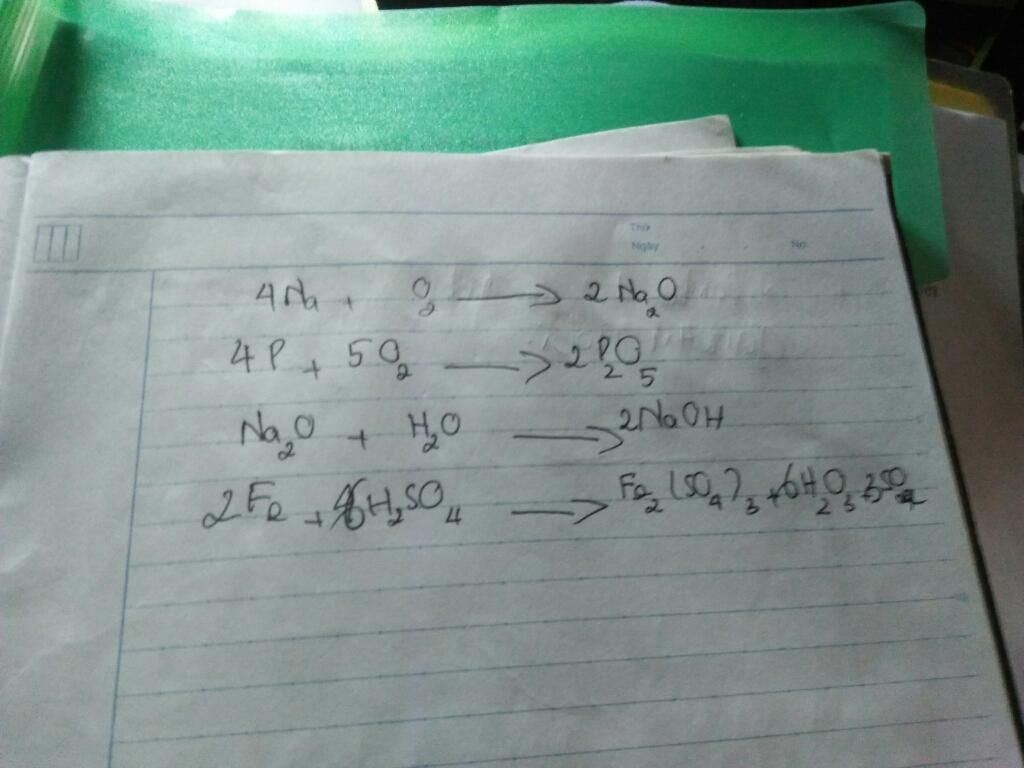 Thứ
Ngày No.
4Na + O₂ ⟶ 2Na₂O
4P + 5O₂ ⟶ 2P₂O₅
Na₂O + H₂O ⟶ 2NaOH
2Fe + 6H₂SO₄ ⟶ Fe₂(SO₄)₃ + 6H₂O